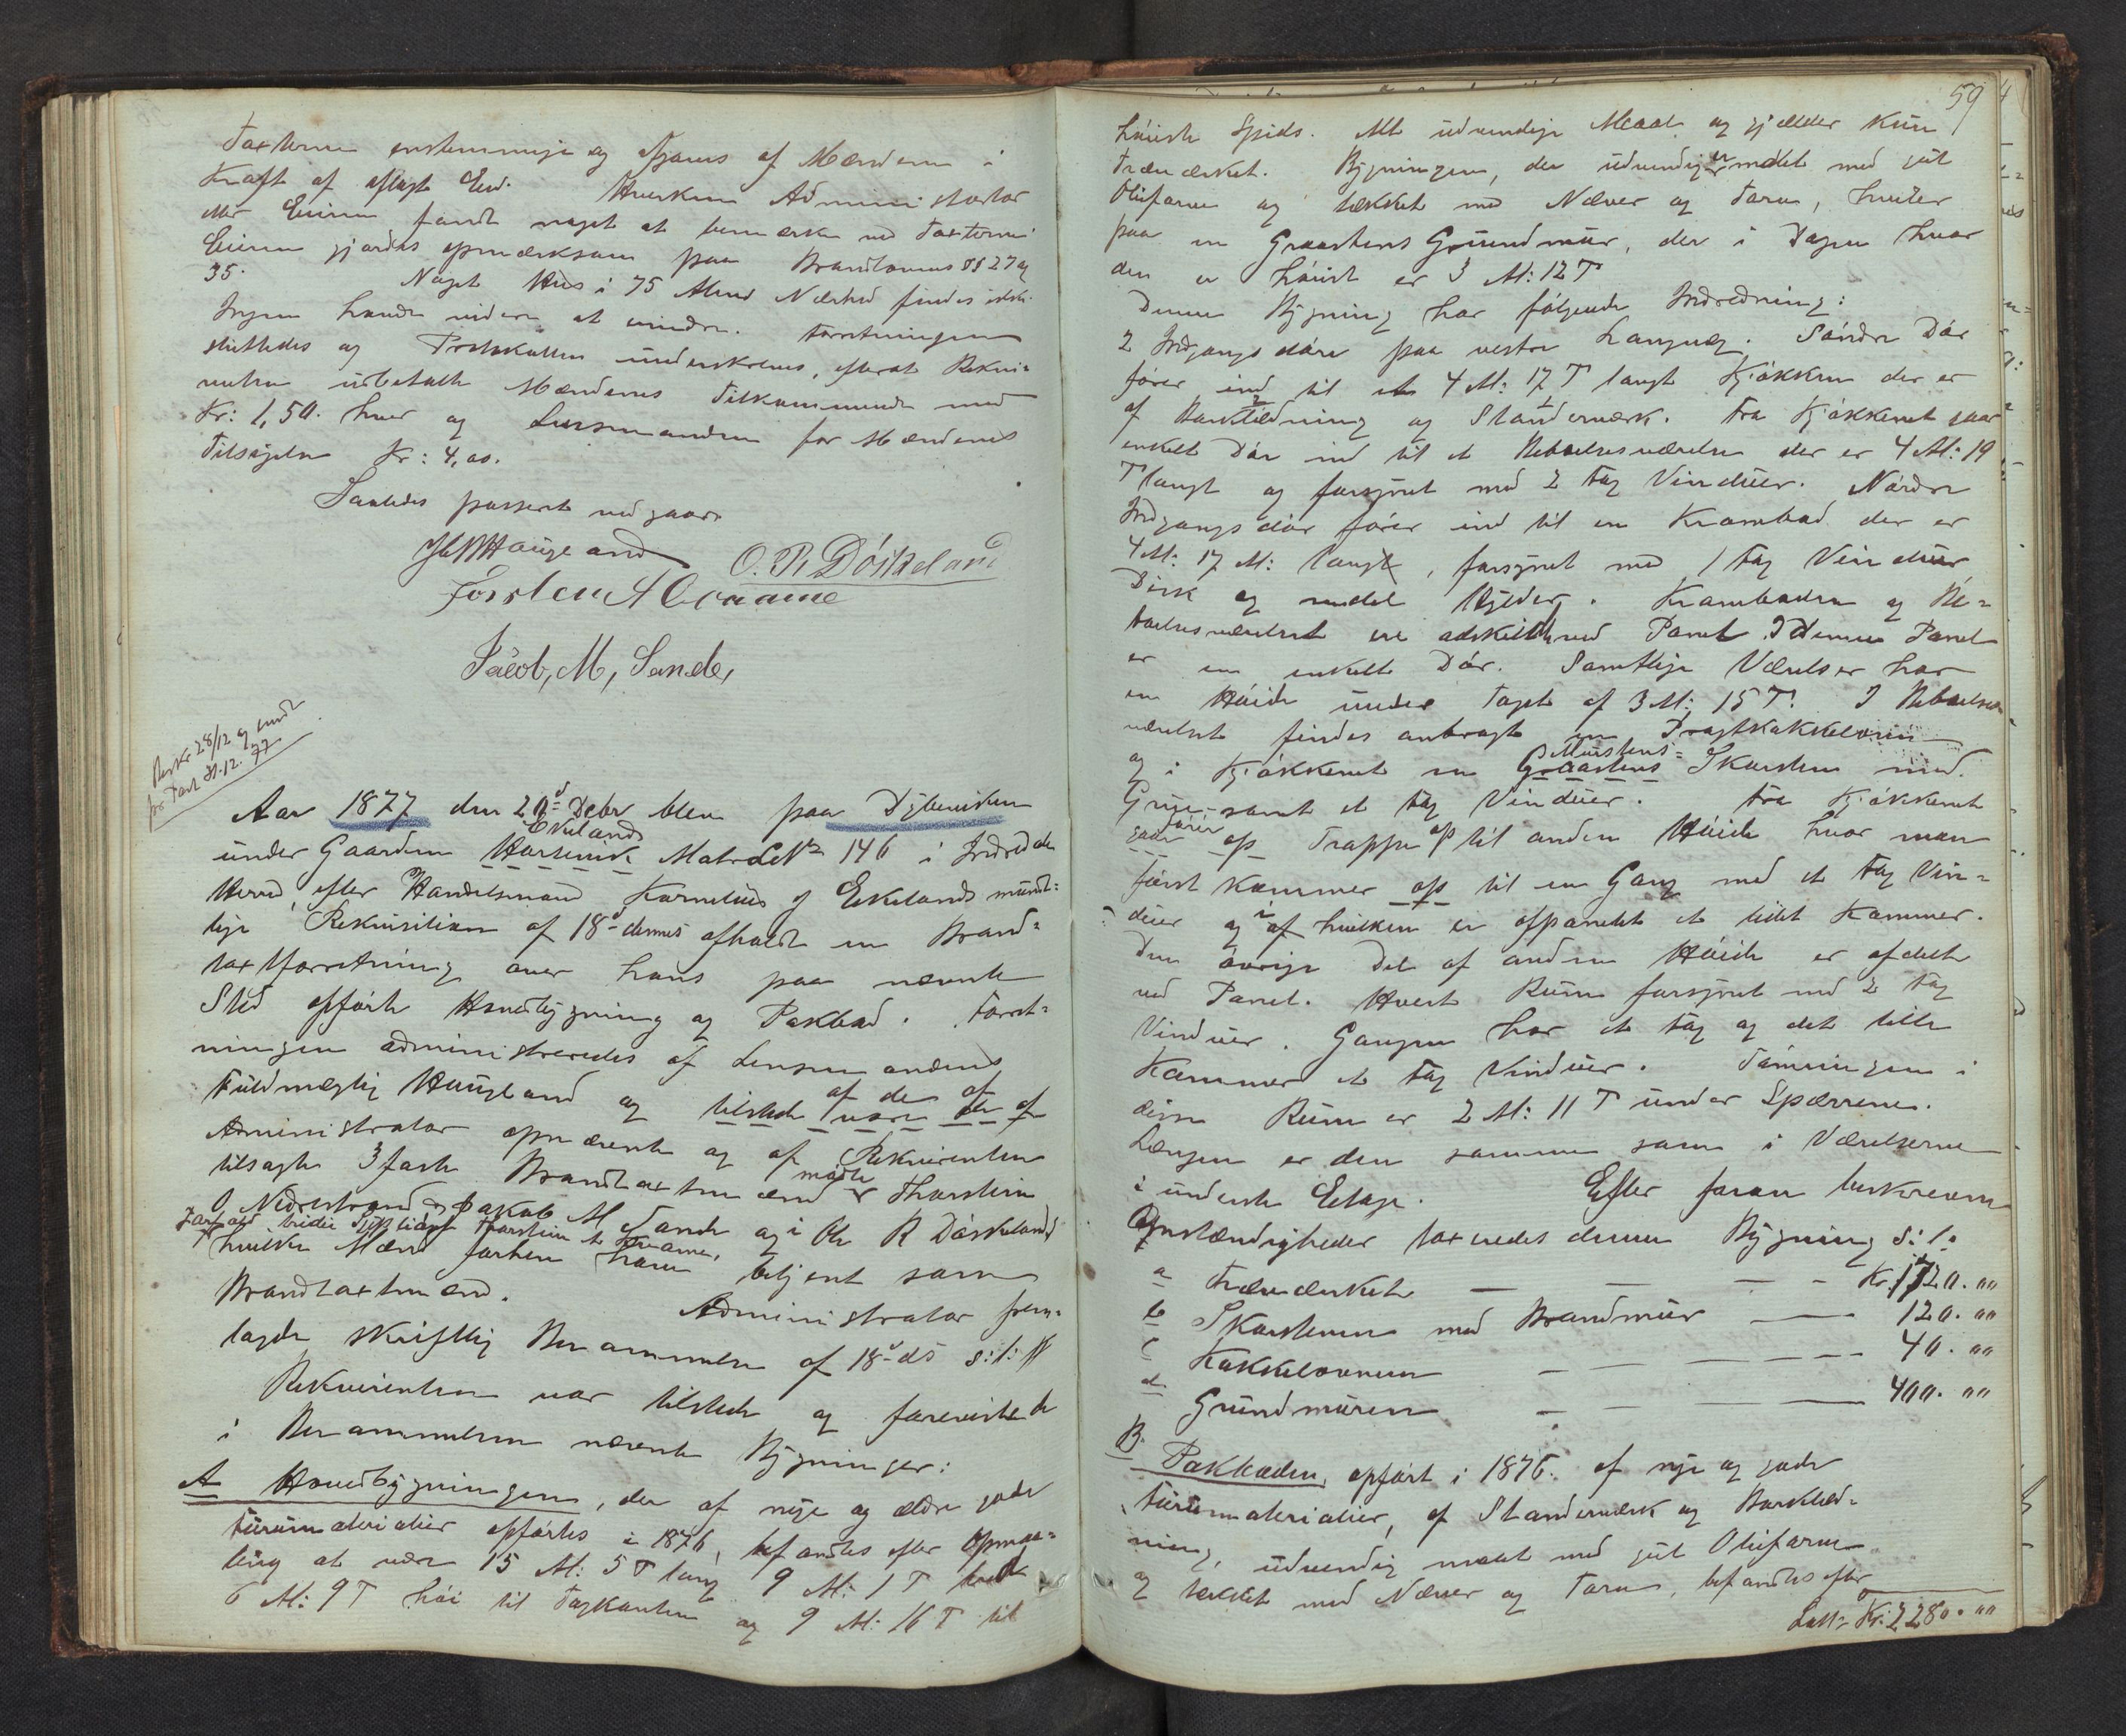 Taxterne enstemmige og afgaves af Mændene i
Kraft af aflagt Eed. Hverken Administrator
eller Eieren fandt noget at bemærke ved Taxterne.
Eieren gjordes opmærksom paa Brandlovens §§ 27 og
35. Noget Hus i 75 Alens Nærhed findes ikke.
Ingen havde videre at erindre. Forretningen
sluttedes og Protokollen underskreves, efterat Rekvi-
renten udbetalte Mændenes Tilkommende med
Kr: 1,50. hver og Lensmanden for Mændenes
Tilsigelse Kr: 4,00.
Saaledes passert vedgaar
Haugland O. R. Döskeland
Torsten A Qvamme
Jacob, M, Sande,
Beskr 28/12 og sendt
pr Post 31.12. 77
Aar 1877 den 20d Debr blev paa Dybeviken
Ekelands
under Gaarden Harsvik Matr LNr 146 i Indredale
Herred, efter Handelsmand Kornelius J Ekelands mundt-
lige Rekvisition af 18d dennes afholdt en Brand-
taxtforretning over hans paa nævnte
Sted opförte Hovedbygning og Pakbod. Forret-
ningen administreredes af Lensmandens
Fuldmægtig Haugland og tilstede var de af
af de af
Administrator opnævnte og af Rekvirenten
tilsagte 3 faste Brandtaxtmænd Thorstein
mødte
O Nedrestrand og Jakob M Sande og i Ole R Döskelands
Forfald tredie Thorstein A Kvamme,
hvilke Mænd forhen have betjent som
Brandtaxtmænd. Administrator frem-
lagde skriftlig Berammelse af 18d ds s: l:
Rekvirenten var tilstede og foreviste de
i Berammelsen nævnte Bygninger:
A Hovedbygningen, der af nye og ældre gode
Furumaterialier opførtes i 1876, befandtes efter Opmaa-
ling at være 15 Al: 5 T lang 9 Al: 1 T bred
6 Al: 9 T höi til Tagkanten og 9 Al: 16 T til
59
höieste Spids. Alt udvendige Maal og gjælder kun
Træværket. Bygningen, der udvendig er malet med gul
Oliefarve og tækket med Næver og Torv, hviler
paa en Graastens Grundmur, der i Dagen hvor
den er höiest er 3 Al: 12 T
Denne Bygning har følgende Indredning:
2 Indgangsdöre paa vestre Langvæg. Söndre Dör
förer ind til et 4 Al: 17 T langt Kjökken der er
af Bordklædning og Standerværk. Fra Kjökkenet gaar
enkelt Dör ind til et Beboelsesværelse der er 4 Al: 19
T langt og forsynet med 2 Fag Vinduer. Nordre
Indgangsdör förer ind til en Krambod der er
4 Al: 17 Al: lang, forsynet med 1 Fag Vinduer
Disk og endel Hylder. Kramboden og Be-
boelsesværelset ere adskildt ved Panel. I denne Panel
er en enkelt Dör. Samtlige Værelser har
en Höide under Taget af 3 Al: 15 T. I Beboelses-
værelset findes anbragt en Dragtkakkelovn
og i Kjökkenet en Graastens Skorsten med
Murstens-
Grue samt et Fag Vinduer. Fra Kjökkenet
gaar op Trappe op til anden Höide hvor man
förer
først kommer op til en Gang med et Fag Vin-
duer og i af hvilken er afpanelet et lidet Kammer.
Den övrige Del af anden Höide er afdelt
ved Panel. Hvert Rum forsynet med 2 Fag
Vinduer. Gangen har et Fag og det lille
Kammer et Fag Vinduer. Tömringen i
disse Rum er 2 Al: 11 T under Spærrene.
Længden er den samme som i Værelserne
i underste Etage. Efter foran beskrevne
Omstændigheder taxeredes denne Bygning s: l:
a Træværket — — — Kr. 1720. ""
b Skorstenen med Brandmur — 120. ""
c Kakkelovnen — — — 40. ""
d Grundmuren — — — 400. ""
B.
Pakboden, opfört i 1876. af nye og gode
Furumaterialier, af Standerværk og Bordklæd-
ning, udvendig malet med gul Oliefarve
og tækket med Næver og Torv, befandtes efter
Lat: Kr: 2280. ""